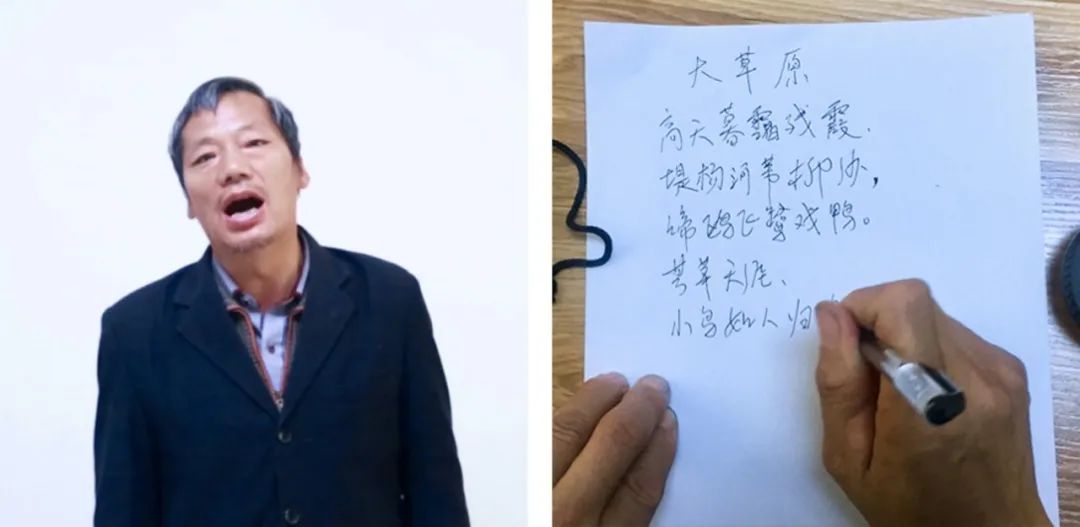 大草原
高天暮霭残霞,
堤杨河苇柳沙,
啼鸥飞鹜戏鸭。
芳草天涯、
小鸟如人归